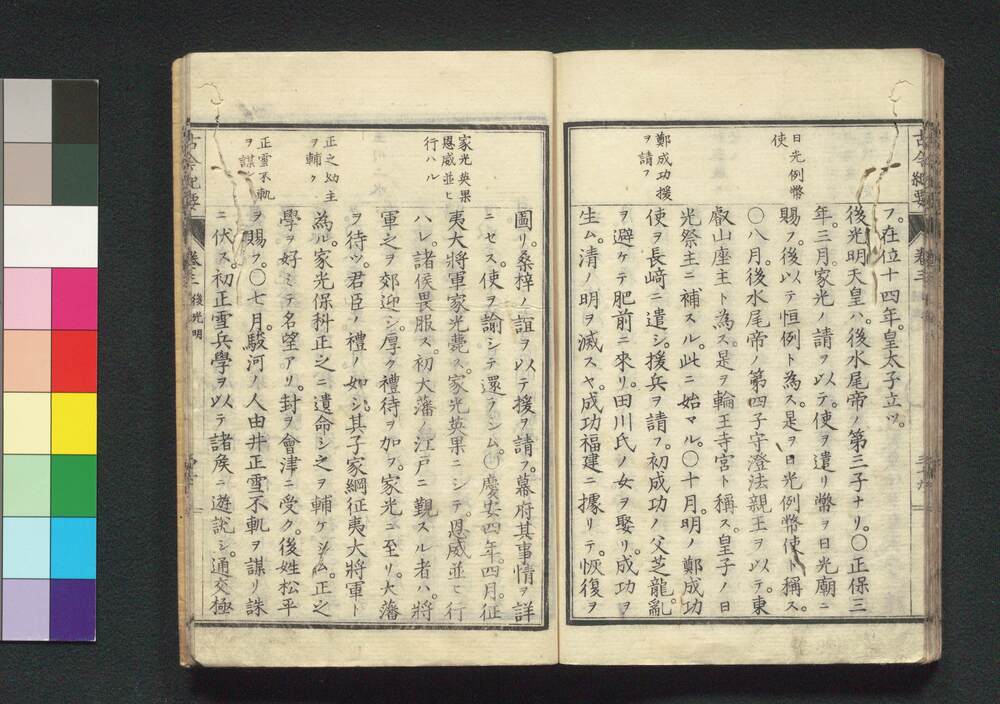 古今紀要
卷三
フ。在位十四年。皇太子立ツ。
後光明天皇ハ。後水尾帝ノ第三子ナリ。〇正保三
年。三月。家光ノ請ヲ以テ。使ヲ遣リ幣ヲ日光廟ニ
賜フ。後以テ恒例ト為ス。是ヲ日光例幣使ト稱ス。
〇八月。後水尾帝ノ第四子守澄法親王ヲ以テ。東
叡山座主ト為ス。是ヲ輪王寺宮ト稱ス。皇子ノ日
光祭主ニ補スル。此ニ始マル。〇十月。明ノ鄭成功
使ヲ長﨑ニ遣シ。援兵ヲ請フ。初成功ノ父芝龍。亂
ヲ避ケテ肥前ニ來リ。田川氏ノ女ヲ娶リ。成功ヲ
生ム。清ノ明ヲ滅スヤ。成功福建ニ據リテ。恢復ヲ
日光例幣
使
鄭成功援
ヲ請フ
圖リ。桑梓ノ誼ヲ以テ援ヲ請フ。幕府其事情ヲ詳
ニセス。使ヲ諭シテ還ラシム。〇慶安四年。四月。征
夷大將軍家光薨ス。家光英果ニシテ。恩威並ヒ行
ハレ。諸侯畏服ス。初大藩ノ江戸ニ觀スル者ハ。將
軍之ヲ郊迎シ。厚ク禮待ヲ加フ。家光ニ至リ。大藩
ヲ待ツ。君臣ノ禮ノ如シ。其子家綱征夷大將軍ト
為ル。家光保科正之ニ遺命シ之ヲ輔ケシム。正之
學ヲ好ミテ名望アリ。封ヲ會津ニ受ク。後姓松平
ヲ賜フ。〇七月。駿河ノ人由井正雪不軌ヲ謀リ誅
ニ伏ス。初正雪兵學ヲ以テ諸矦ニ遊說シ。通交極
家光英果
恩威並ヒ
行ハル
正之幼主
ヲ輔ク
正雪不軌
ヲ謀ル
古今紀要
卷三
後光明